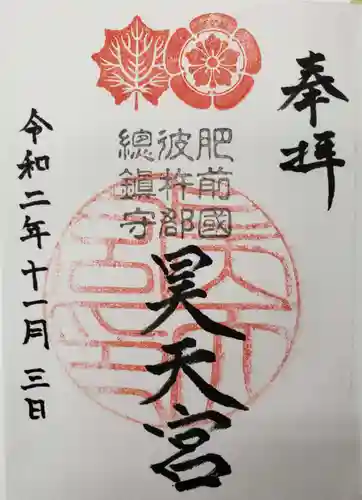 奉拝
肥前國
彼杵郡
總鎮守
昊天宮
令和二年十一月三日